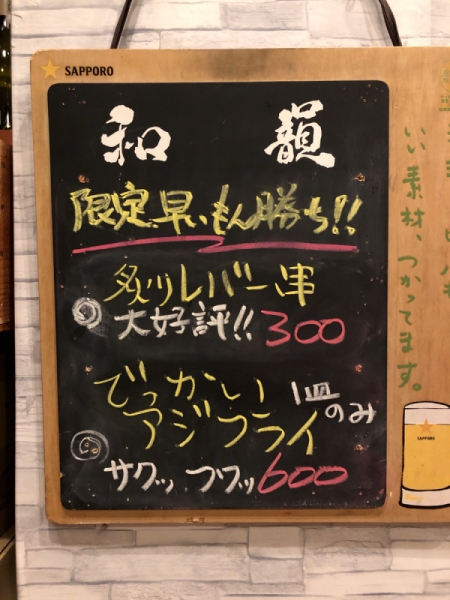 SAPPORO
和 韻
限定、早いもん勝ち!!
炙りレバー串
大好評!! 300
でっかい
アジフライ 1皿のみ
サクッ フワッ 600
い素材、つかってます。
SAPPORO